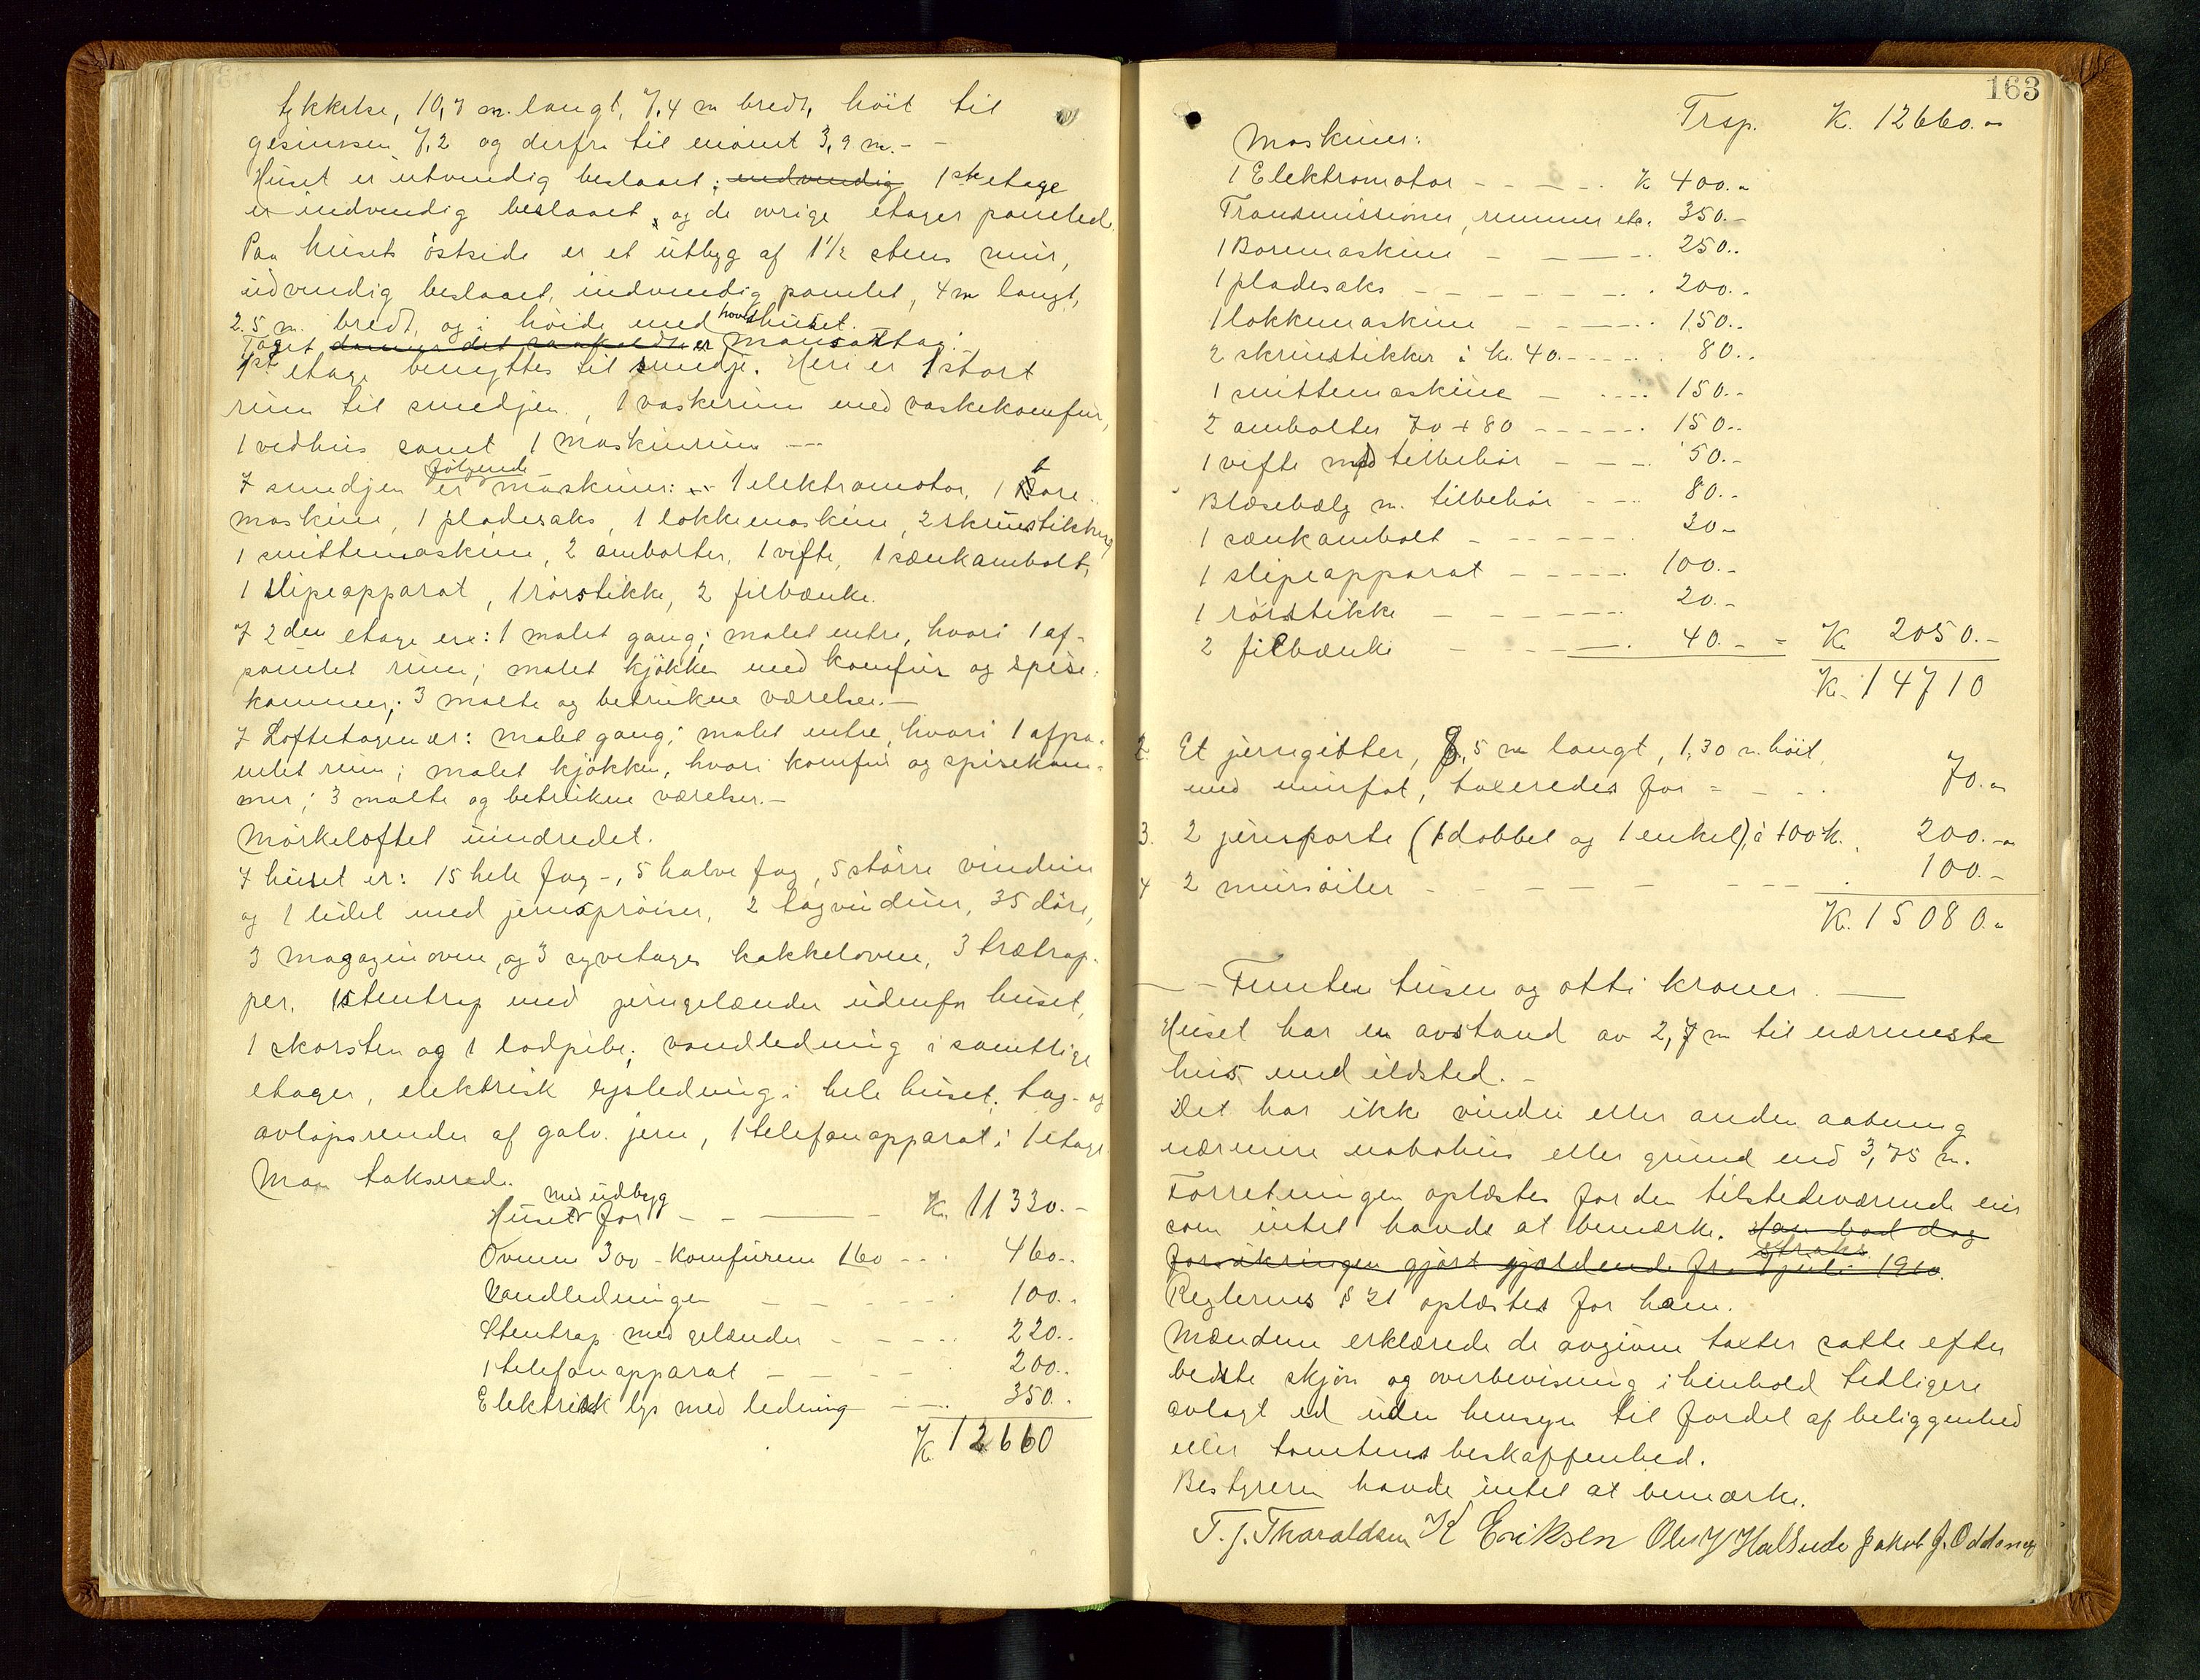 tykkelse, 10,7 m. langt, 7,4 m bredt, höit til
gesimsen 7,2 og derfra til mönet 3,9 m. - -
Huset er utvendig beslaaet; indvendig 1ste etage
er indvendig beslaaet, og de övrige etager panelet.
Paa husets östside er et utbyg af 1½ stens mur,
udvendig beslaaet, indvendig panelet, 4 m langt,
2.5 m. bredt, og i höide med hovedhuset. -
Taget er Mansattag.
1ste etage benyttes til smedje. Heri er 1 stort
rum til smedjen, 1 vaskerum med vaskekomfur,
1 vedhus samt 1 maskinrum ---
I smedjen er følgende maskiner: 1 elektromotor, 1 Bore-
maskine, 1 pladesaks, 1 lokkemaskine, 2 skruestikker,
1 snittemaskine, 2 ambolter, 1 vifte, 1 sænkambolt,
1 slipeapparat, 1 rörstikke, 2 filbænke.
I 2den etage er: 1 malet gang; malet entre, hvori 1 af-
panelet rum; malet kjökken med komfur og spise-
kammer; 3 malte og betrukne værelser. -
I Loftetagen er: malet gang; malet entre, hvori 1 afpa-
nelet rum; malet kjökken, hvori komfur og spisekam-
mer; 3 malte og betrukne værelser. -
Mörkeloftet uindredet.
I huset er: 15 hele fag -, 5 halve fag, 5 större vinduer
og 1 lidet med jernspröiser, 2 tagvinduer, 35 döre,
3 magazinovne, og 3 syvetages kakkelovne, 3 trætrap-
per, 1 stentrap med jerngelænder udenfor huset,
1 skorsten og 1 lodpibe; vandledning i samtlige
etager, elektrisk lysledning i hele huset, tag- og
avlöpsrender af galv. jern, 1 telefonapparat i 1 etage.
Man takserede
Huset med udbyg for - - — - K. 11330.-
Ovnene 300 - Komfurene 160 - - . 460..
Vandledningen - - - - - . 100..
Stentrap med gelænder - - - - . 220..
1 telefonapparat - - - - . 200..
Elektrisk lys med ledning - - . 350..
K 12660
163
Trsp. K. 12660.-
Maskiner:
1 Elektromotor - - - - . K 400.-
Transmissioner, remmer etc. 350.-
1 Boremaskine - - - - . 250..
1 pladesaks - - - - - - . 200..
1 lokkemaskine - - - - . 150..
2 skruestikker à K. 40. - - - - . 80..
1 snittemaskine - - - - . 150..
2 ambolter 70 + 80 - - - - - . 150..
1 vifte med tilbehör - - - . 50.-
Blæsebælg m. tilbehör - - - 80.-
1 sænkambolt - - - - - . 30.-
1 slipeapparat - - - - - . 100.-
1 rörstikke - - - - - . 20.-
2 filbænke - - - - . 40.- - K. 2050.-
K. 14710
2. Et jerngitter, 8,5 m langt, 1,30 m. höit,
med murfot, taxeredes for = - - . 70.-
3. 2 jernporte (1 dobbel og 1 enkel), à 100 K. 200.-
4 2 mursöiler - - - - - - - - . 100.-
K. 15080.-
— - Femten tusen og otti kroner. —
Huset har en avstand av 2,7 m til nærmeste
hus med ildsted. -
Det har ikke vindu eller anden aabning
nærmere nabohus eller grund end 3,75 m.
Forretningen oplæstes for den tilstedeværende eier
som intet havde at bemærke. Han bad dog
forsikringen gjort gjældende fra straks 1 juli 1910.
Reglernes § 21 oplæstes for ham.
Mændene erklærede de avgivne taxter satte efter
bedste skjön og overbevisning i henhold tidligere
avlagt ed uden hensyn til fordel af beliggenhed
eller tomtens beskaffenhed.
Bestyreren havde intet at bemærke.
T. J. Tharaldsen K Eriksen Jakob J. Oddanes